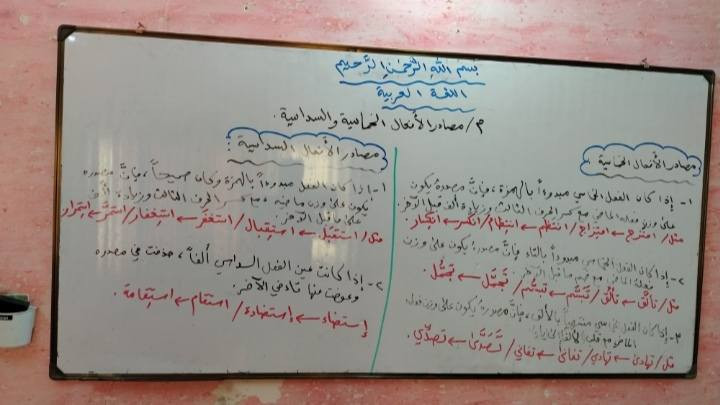 بسم الله الرحمن الرحيم
اللغة العربية
م/ مصادر الأفعال الخماسية والسداسية.
مصادر الأفعال الخماسية:
١- إذا كان الفعل الخماسي مبدوءاً بالهمزة، فإنَّ مصدرهُ يكون
على وزن فعله الماضي مع كسر الحرف الثالث وزيادة ألف قبل الآخر.
مثل/ اقترح ← اقتراح/ انتظم ← انتظام/ انكسر ← انكسار.
٢- إذا كان الفعل الخماسي مبدوءاً بالتاء فإنَّ مصدره يكون على وزن
فعله الماضي مع ضم ما قبل الآخر.
مثل/ تألَّق ← تألُّق/ تبسَّم ← تبسُّم/ تجمَّل ← تجمُّل.
٣- إذا كان الفعل الخماسي منتهياً بالألف، فإنَّ مصدره يكون على وزن فعله
الماضي مع قلب الألف ياءً.
مثل/ تهادى ← تهادي/ تفانى ← تفاني/ تصدَّى ← تصدِّي.
مصادر الأفعال السداسية:
١- إذا كان الفعل مبدوءاً بالهمزة وكان صحيحاً، فإنَّ مصدره
يكون على وزن ماضيه، مع كسر الحرف الثالث وزيادة ألف
على ما قبل الآخر.
مثل/ استقبل ← استقبال/ استغفر ← استغفار/ استمرَّ ← استمرار
٢- إذا كانت عين الفعل السداسي ألفاً، حذفت في مصدره
وعوضت عنها تاء في الآخر.
إستضاء ← إستضاءة/ استقام ← استقامة.